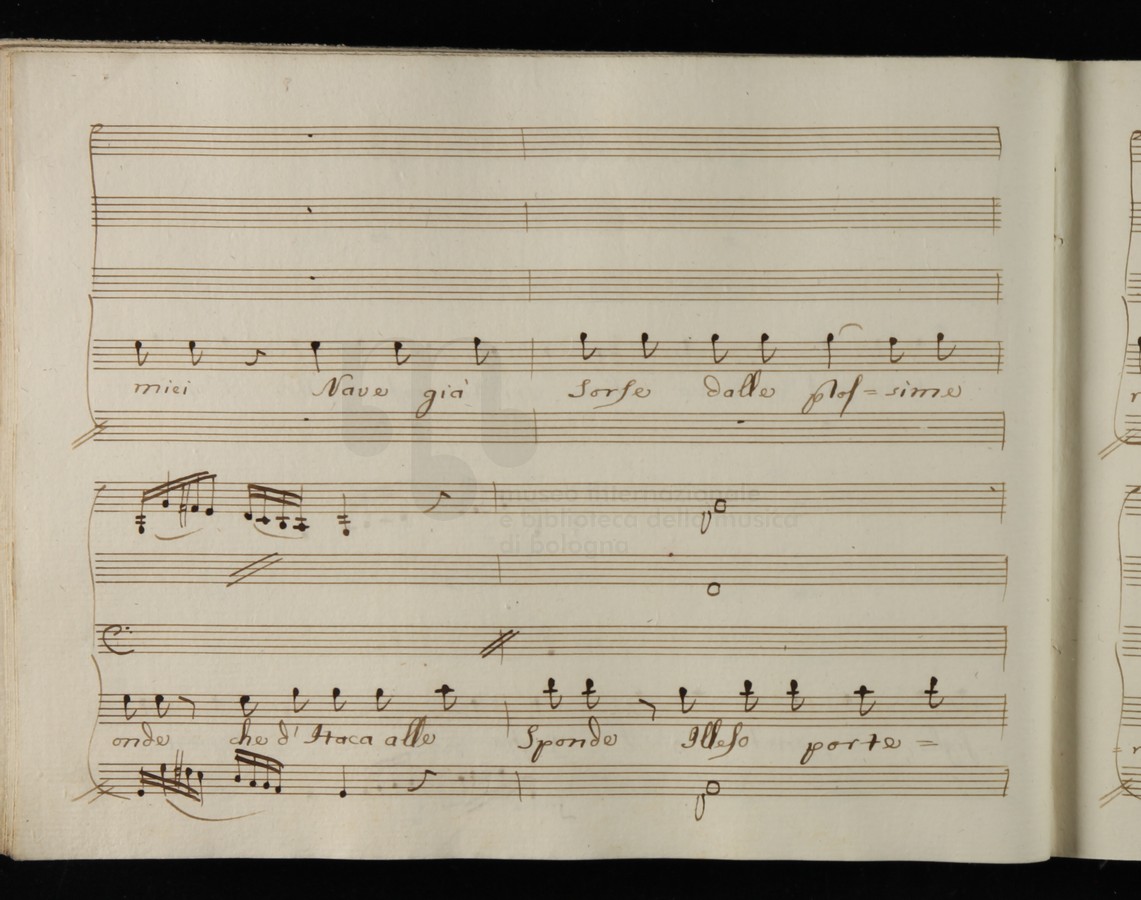 miei Nave già Sorse dalle pros=sime
museo internazionale
e biblioteca della musica
di bologna
onde che d' Itaca alle Sponde Illeso porte=